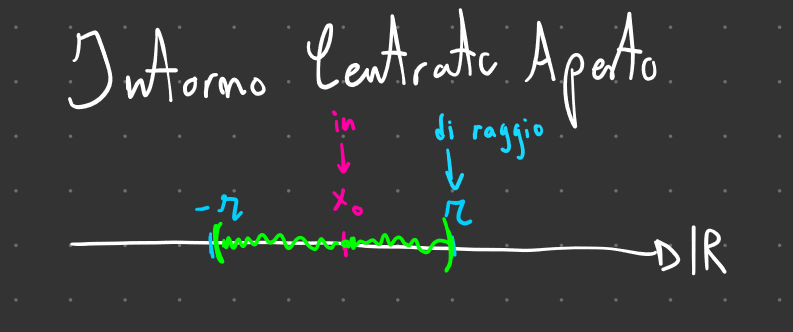 Intorno Centrato Aperto
in
di raggio
x₀
-r
r
IR